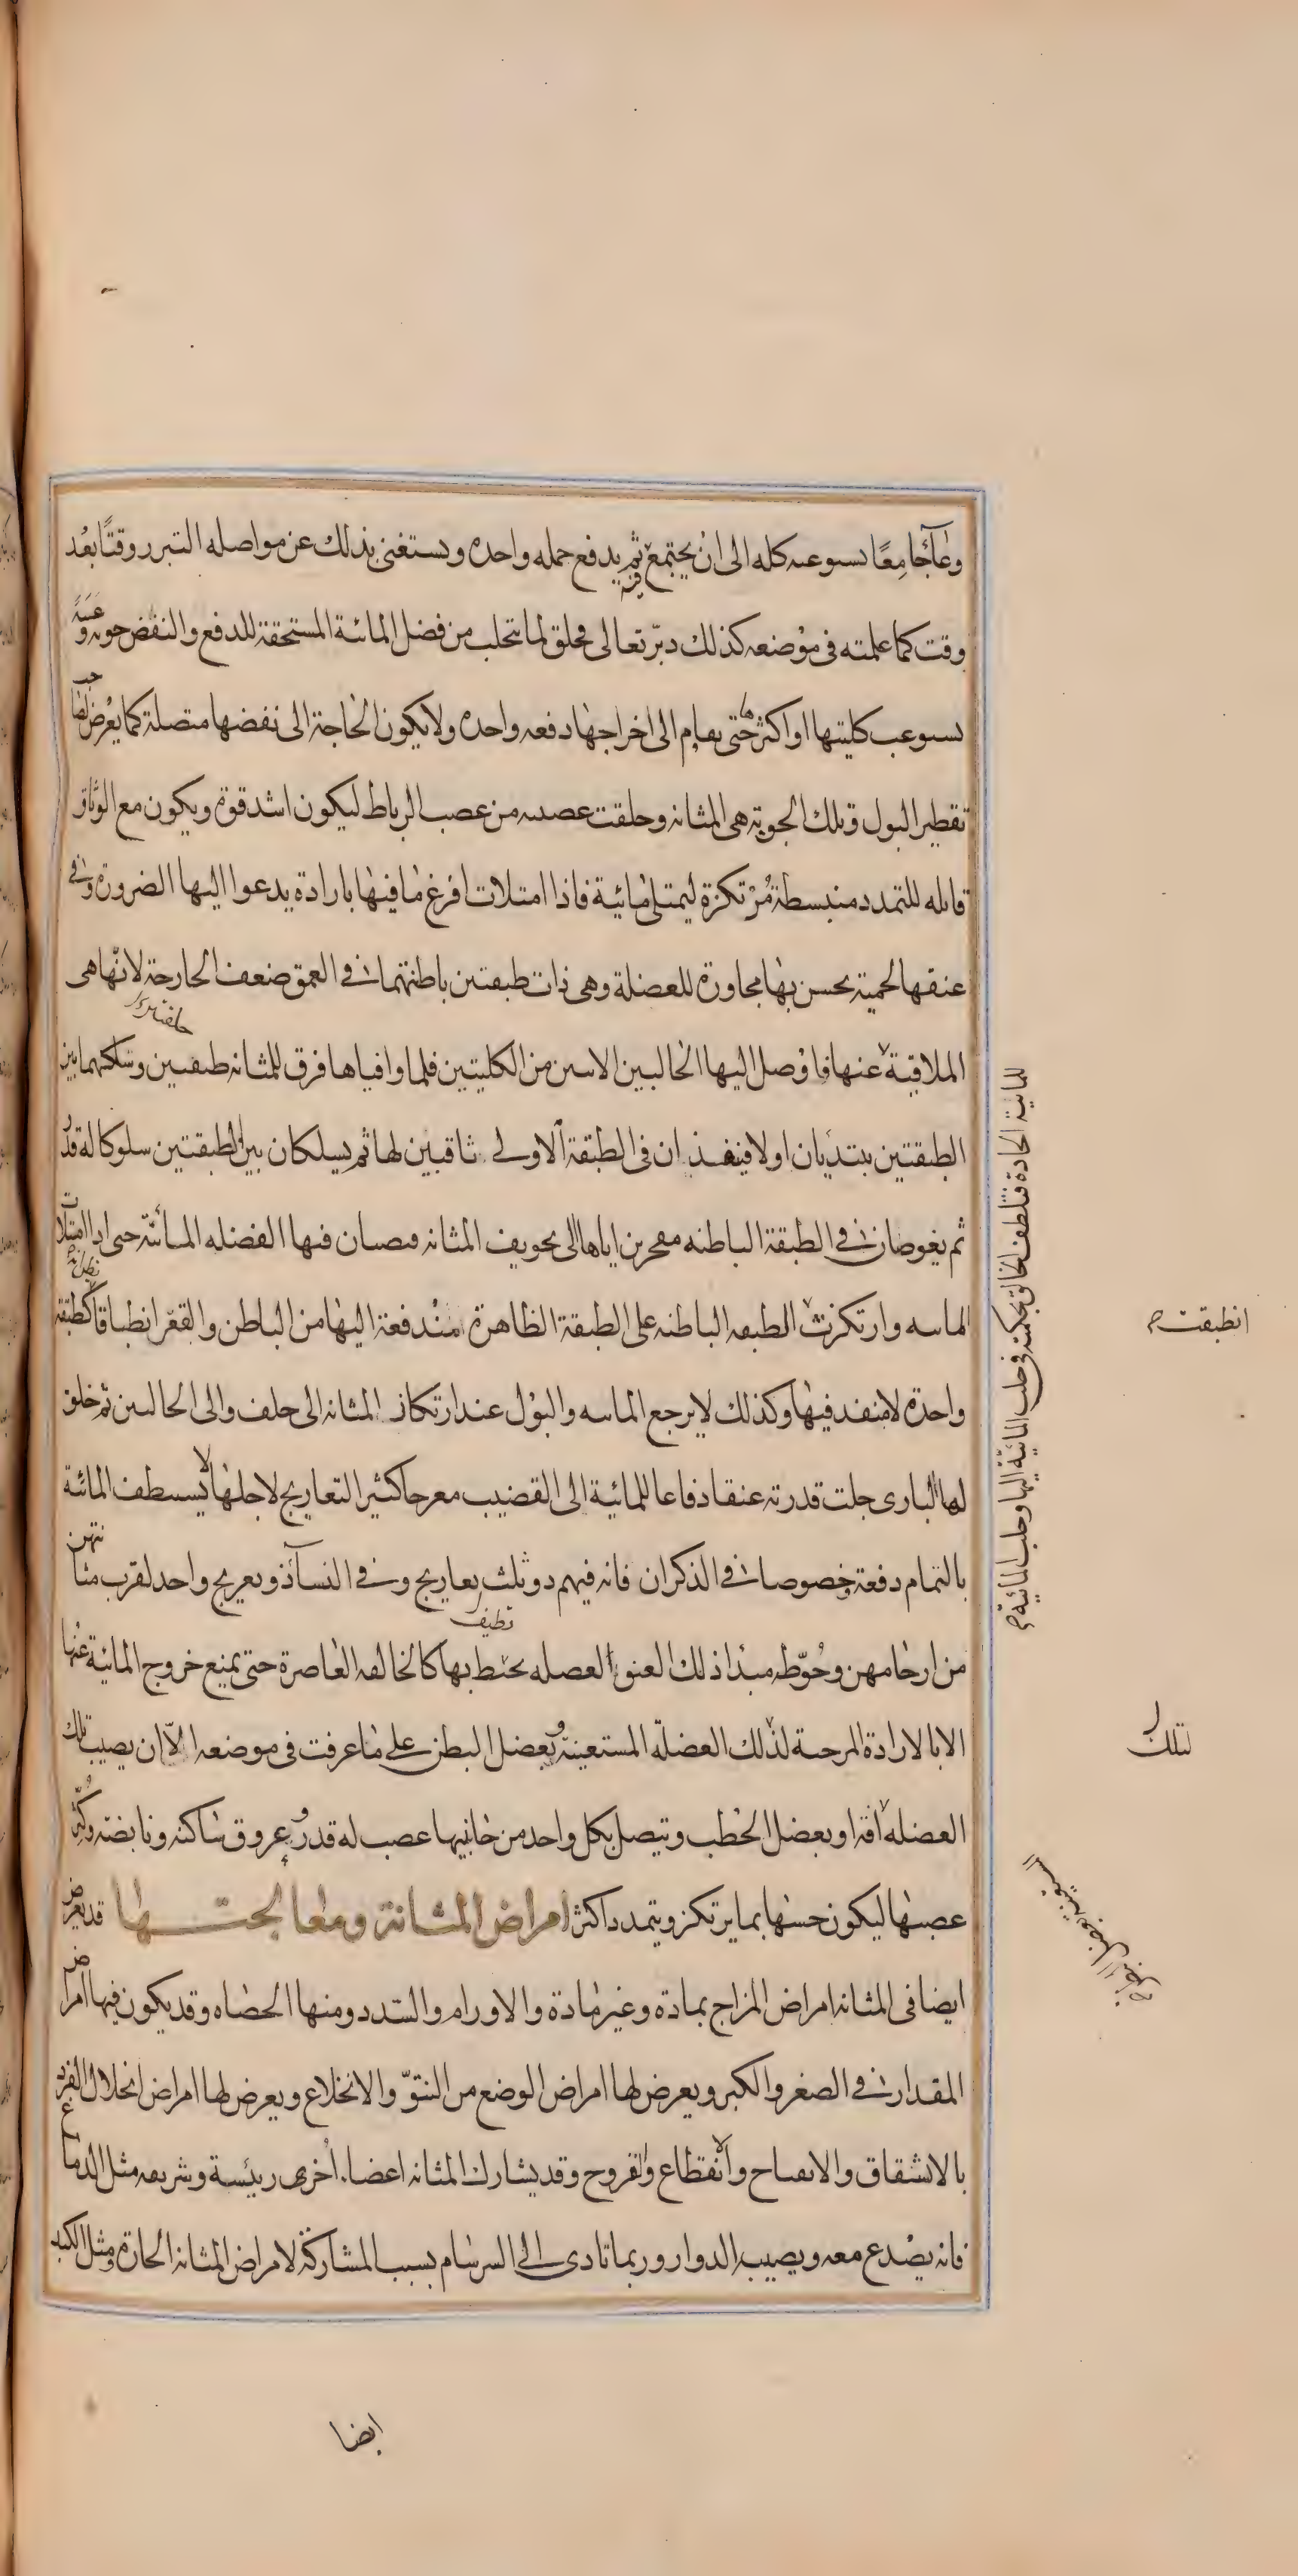 وعآءً جامعًا يستوعب كله الى ان يجتمع ثم يدفع جمله واحده ويستغنى بذلك عن مواصله التبرز وقتًا بعد
وقت كما علمته فى موضعه كذلك دبّر تعالى فخلق لما يتحلب من فضل المائية المستحقة للدفع والنفض جوبة وعيبة
يستوعب كليتها او اكثرها حتى يقام الى اخراجها دفعه واحده ولا يكون الحاجة الى نفضها متصلة كما يعرض لصاحب
تقطير البول وتلك الجوبة هى المثانه وخلقت عصبيه من عصب الرباط ليكون اشد قوة ويكون مع الوثاق
قابله للتمدد منبسطة مُرْتكزة ليمتلى مائية فاذا امتلات افرغ ما فيها بارادة يدعوا اليها الضرورة وفى
عنقها لحمية يحسن بها مجاورة للعضلة وهى ذات طبقتين باطنتهما فى العمق ضعف الخارجة لانها هى
الملاقية عنها فاوصل اليها الحالبين الاتيين من الكليتين فلما وافياها فرق للمثانه طبقتين وسلكهما بين
الطبقتين يبتديان اولا فينفذان فى الطبقة الاولى ثاقبين لها ثم يسلكان بين الطبقتين سلوكا له قدر
ثم يغوصان فى الطبقة الباطنه مفجرين اياها الى تجويف المثانه فيصبان فيها الفضله المائية حتى اذا امتلات
المائيه وارتكزت الطبقه الباطنه على الطبقة الظاهرة مندفعة اليها من الباطن والقعر انطباقا كطبقة
واحدة لا منفد فيها وكذلك لا يرجع المائيه والبول عند ارتكاز المثانه الى خلف والى الحالبين ثم خلق
لها البارى جلت قدرته عنقا دفاعا للمائية الى القضيب معرجا كثير التعاريج لاجلها لا يستنظف المائية
بالتمام دفعة وخصوصا فى الذكران فانه فيهم ذو ثلث تعاريج وفى النسآء ذو تعريج واحد لقرب مثانتهن
من ارحامهن وحُوّط مبدا ذلك العنق العضله تحيط بها كالخانقه العاصرة حتى يمنع خروج المائية عنها
الا بالارادة المرخية لذلك العضلة المستعينة بعضل البطن على ما عرفت فى موضعه الّا ان يصيب تلك
العضله افة او بعضل الخطب ويتصل بكل واحد من جانبيها عصب له قدر وعروق ساكنه ونابضه وكُثّر
عصبها ليكون حسها بما يرتكز ويتمدد اكثر امراض المثانة ومعالجتها قد يعرض
ايضا فى المثانه امراض المزاج بمادة وغير مادة والاورام والسدد ومنها الحصاه وقد يكون فيها امراض
المقدار فى الصغر والكبر ويعرض لها امراض الوضع من النتوّ والانخلاع ويعرض لها امراض انحلال الفرد
بالانشقاق والانفتاح والانقطاع والقروح وقد يشارك المثانه اعضاء اخرى رئيسة وشريفه مثل الدماغ
فانه يصدع معه ويصيب الدوار وربما تادى الى السرسام بسبب المشاركة لامراض المثانه الحارة ومثل الكبد
للمائية الحادة فتلطف الخالق بحكمته فى جلب المائية اليها وجلب المائية
انطبقت
لتلك
ايضا